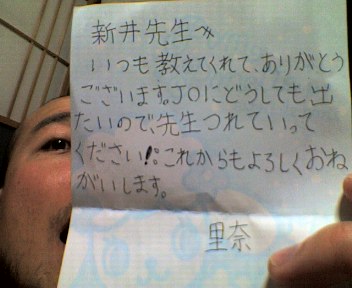 新井先生へ
いつも教えてくれて、ありがとう
ございます。JOにどうしても出
たいので、先生つれていって
ください!!これからもよろしくおね
がいします。
里奈